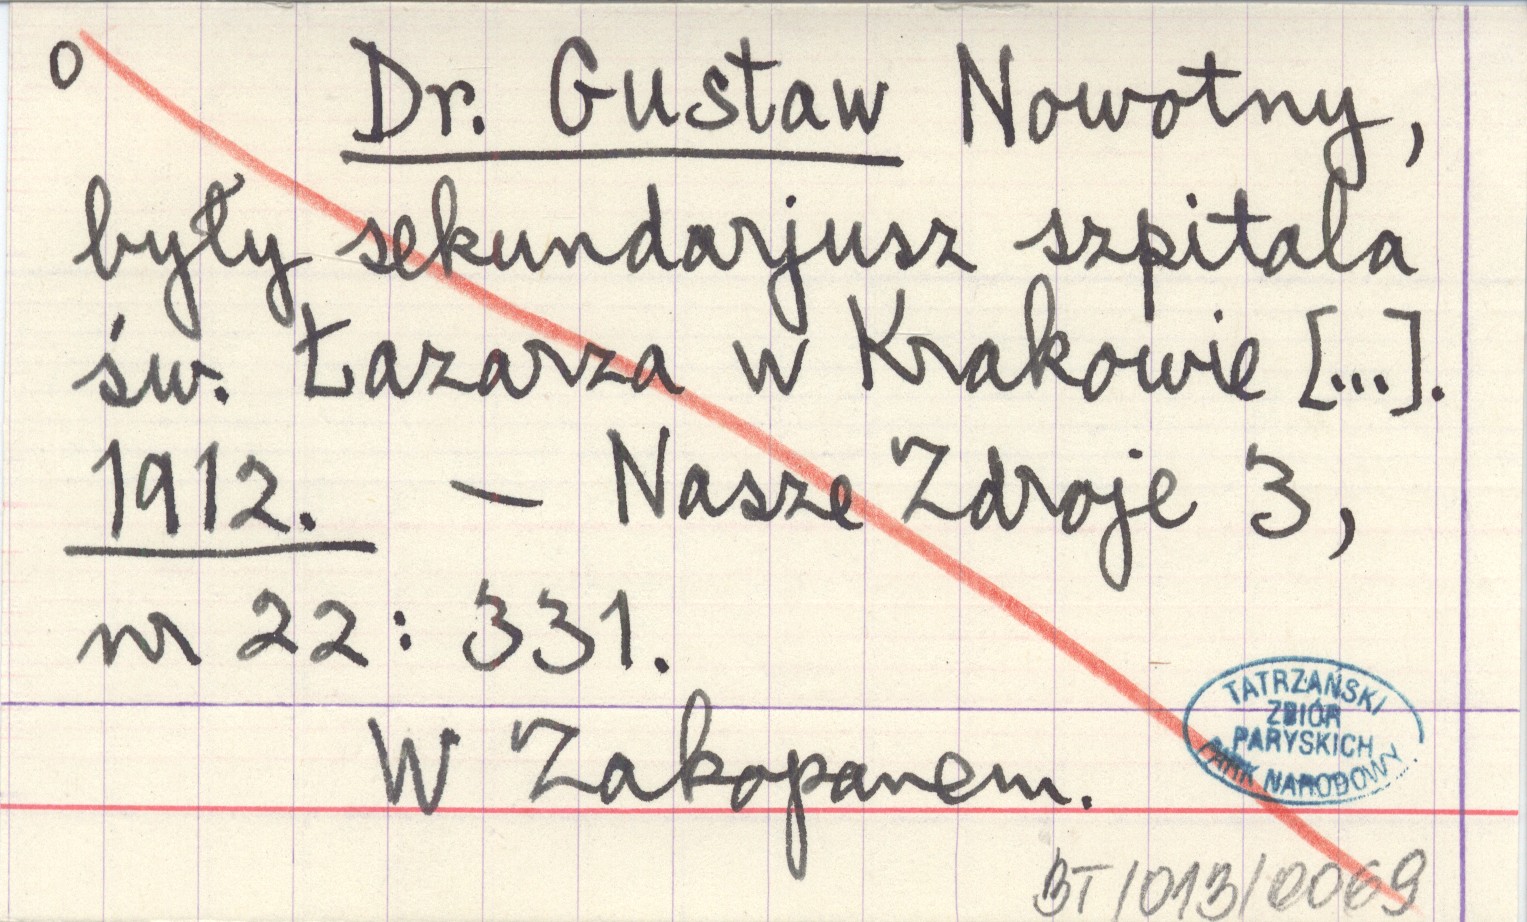 o Dr. Gustaw Nowotny,
były sekundarjusz szpitala
św. Łazarza w Krakowie [...].
1912. – Nasze Zdroje 3,
nr 22: 331.
W Zakopanem.
TATRZAŃSKI
ZBIÓR
PARYSKICH
PARK NARODOWY
BT/013/0069